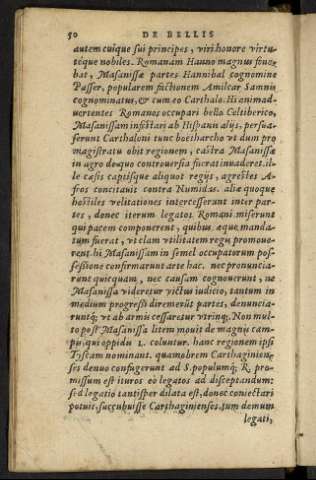 50 DE BELLIS
autem cuique sui principes, viri honore virtu-
téque nobiles. Romanam Hanno magnus fove-
bat, Masanissæ partes Hannibal cognomine
Passer, popularem factionem Amilcar Samnis
cognominatus, & cum eo Carthalo. Hi animad-
vertentes Romanos occupari bello Celtiberico,
Masanissam infestari ab Hispanis alijs, persua-
serunt Carthaloni tunc boëtharcho vt dum pro
magistratu obit regionem, castra Masanissæ
in agro de quo controuersia fuerat inuaderet. il-
le cæsis captisque aliquot regijs, agrestes A-
fros concitauit contra Numidas. aliæ quoque
hostiles velitationes intercesserunt inter par-
tes, donec iterum legatos Romani miserunt
qui pacem componerent, quibus æque manda-
tum fuerat, vt clam vtilitatem regis promoue-
rent. hi Masanissam in semel occupatorum pos-
sessione confirmarunt arte hac. nec pronuncia-
runt quicquam, nec causam cognouerunt, ne
Masanissa videretur victus iudicio, tantum in
medium progressi diremerũt partes, denuncia-
runtq; vt ab armis cessaretur vtrinq;. Non mul-
to post Masanissa litem mouit de magnis cam-
pis, qui oppidis L. coluntur. hanc regionem ipsi
Tyscam nominant. quamobrem Carthaginien-
ses denuo confugerunt ad S. populumq; R. pro-
missum est ituros eò legatos ad disceptandum:
sed legatio tantisper dilata est, donec coniectari
potuit, succubuisse Carthaginienses. tum demum
legati,